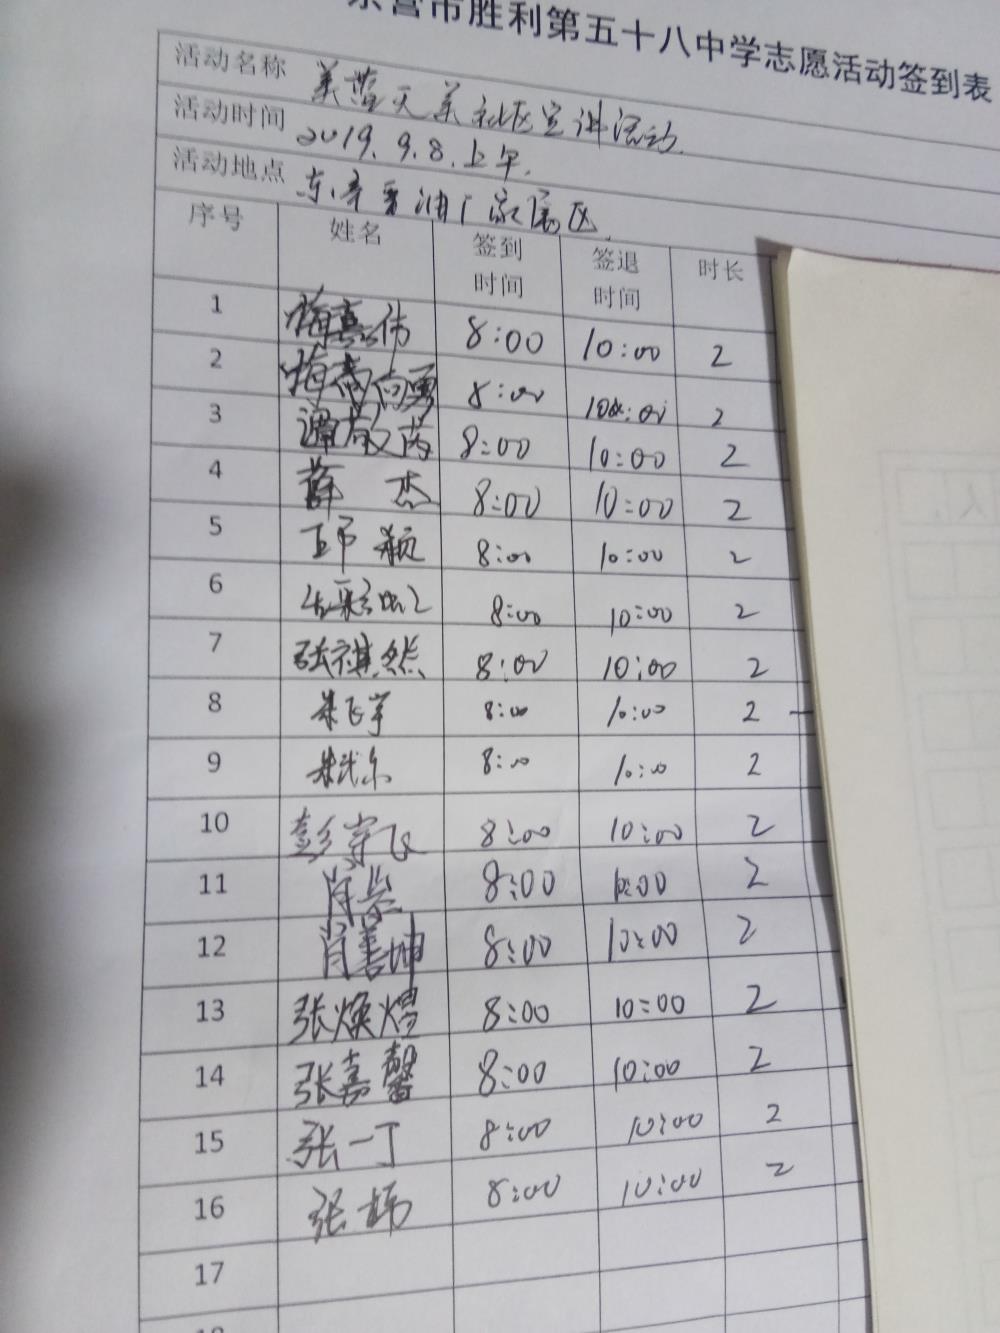 东营市胜利第五十八中学志愿活动签到表
活动名称 美蓝天美社区宣讲活动.
活动时间 2019.9.8.上午.
活动地点 东辛采油厂家属区.
序号 姓名 签到时间 签退时间 时长
1 梅真伟 8:00 10:00 2
2 8:00 10:00 2
3 谭敬芮 8:00 10:00 2
4 薛杰 8:00 10:00 2
5 8:00 10:00 2
6 8:00 10:00 2
7 张祺然 8:00 10:00 2
8 朱飞宇 8:00 10:00 2
9 8:00 10:00 2
10 彭宇飞 8:00 10:00 2
11 8:00 10:00 2
12 肖善坤 8:00 10:00 2
13 张焕熠 8:00 10:00 2
14 张嘉馨 8:00 10:00 2
15 张一丁 8:00 10:00 2
16 张杨 8:00 10:00 2
17